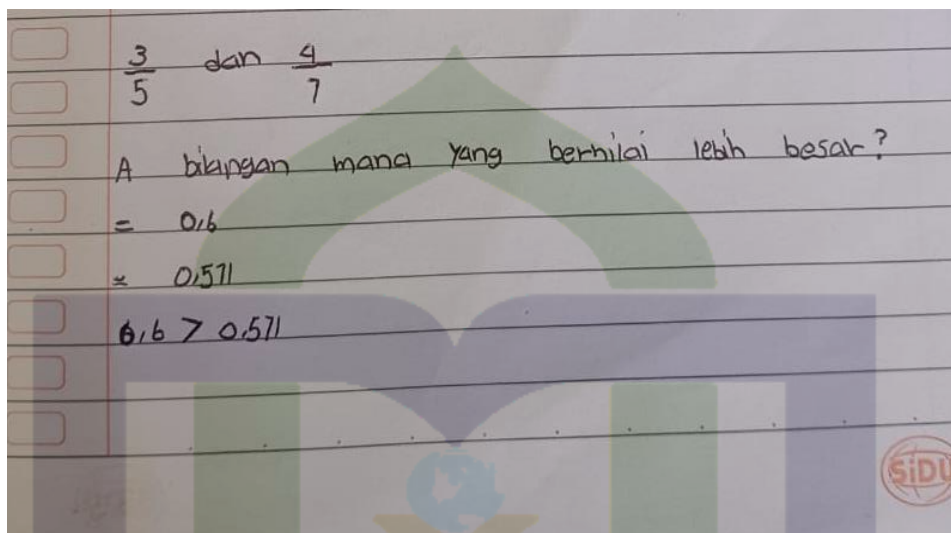 3/5 dan 4/7
A bilangan mana yang bernilai lebih besar?
= 0,6
≈ 0,571
0,6 > 0,571
SiDU